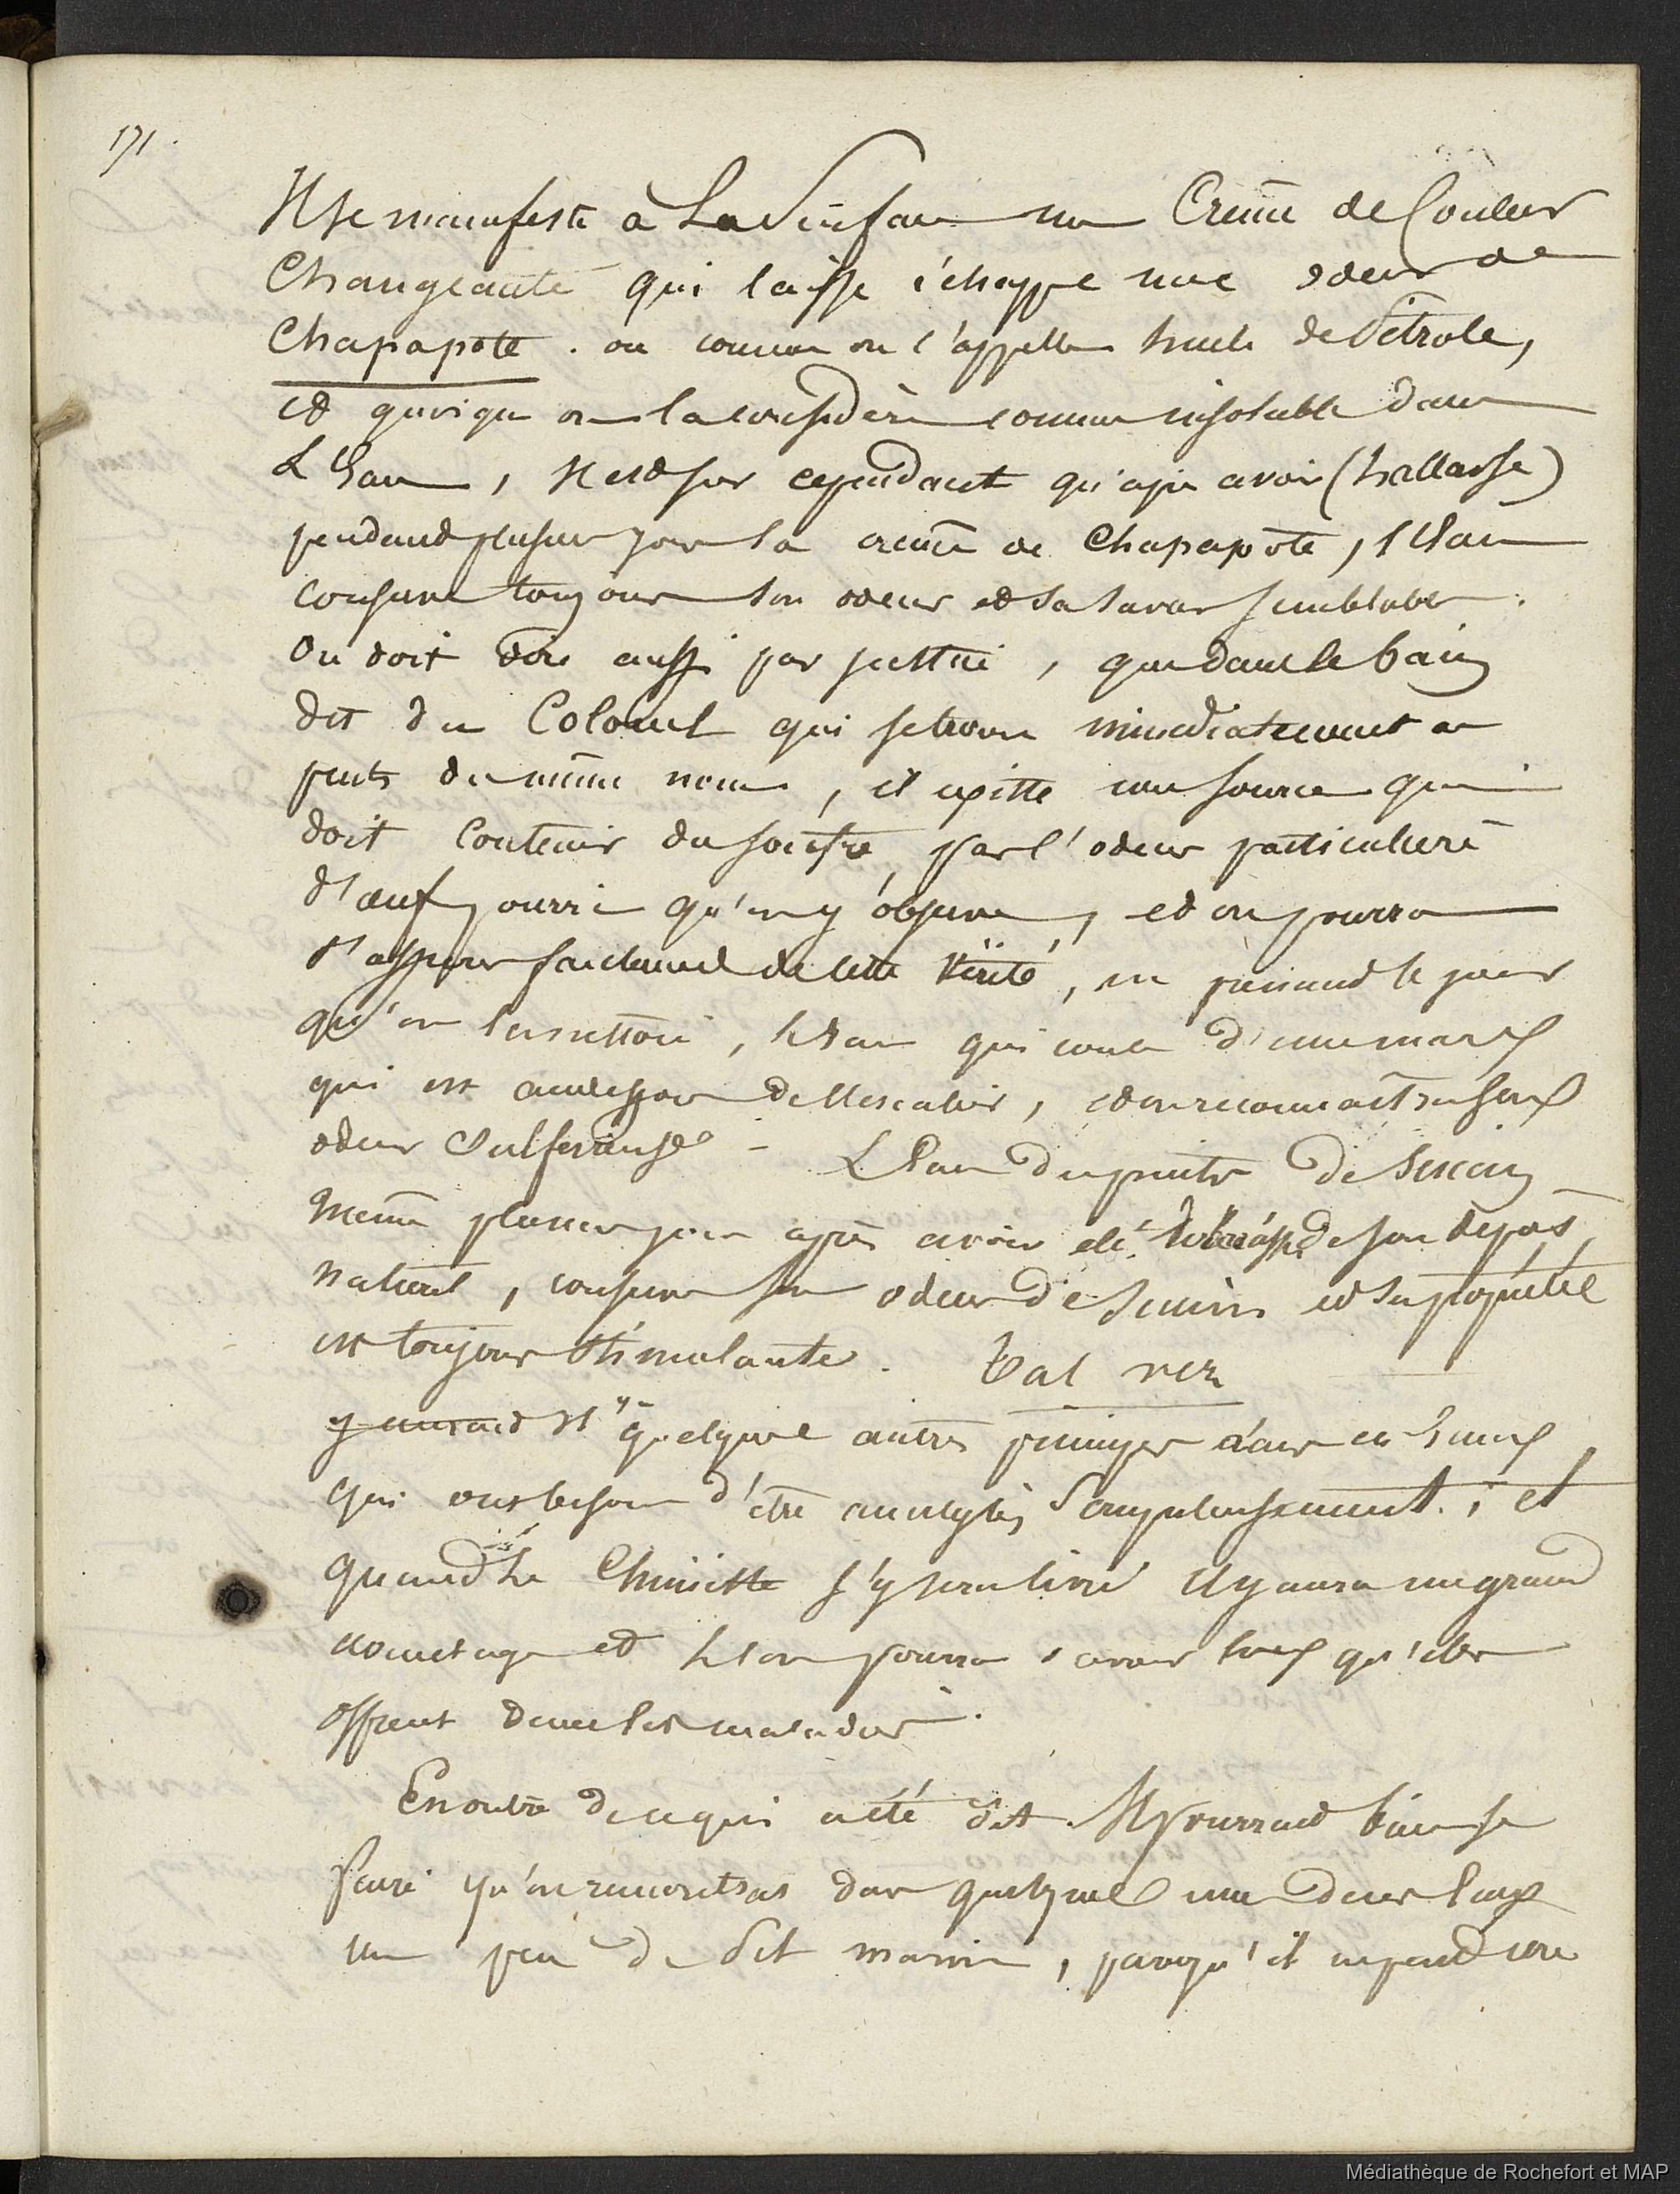 171.
Il se manifeste à La Surface une Crême de Couleur
Changeante qui laisse échappe une odeur de
Chapapote . ou comme on l'appelle huile de Pétrole,
et quoique on la considère comme insoluble dans
L'Eau , Il est sur cependant qu'apres avoir
pendant plusieurs jours la crême de Chapapote , l'Eau
conserve toujours son odeur et sa saveur semblable .
On doit dire aussi par justice , que dans le bain
dit du Colonel qui se trouve immediatement au
puits du même nom , il existe une source qui
doit Contenir du soufre par l'odeur particuliere
d'œuf pourri qu'on y observe , et on pourra
s'assurer facilement de cette Vérité , en prenant le jour
qu'on le nettoie , l'Eau qui coule d'une
qui est de l'escalier , et on reconnait
odeur Sulfureuse - L'Eau du puits de
Même plusieurs jours après avoir été de son depot
naturel , conserve son odeur de et sa propriété
est toujours Stimulante . Tal vez
y aurait il quelques autres principes dans ces Eaux
qui ont besoin d'être analysés Scrupuleusement ; et
quand le Chimiste s'y sera livré il y aura un grand
avantage et l'on pourra savoir qu'elles
offrent dans les maladies .
En outre de ce qui a été dit Il pourrait bien se
faire qu'on rencontrat dans quelques une de ces Eaux
un peu de Sel marin , parcequ'il